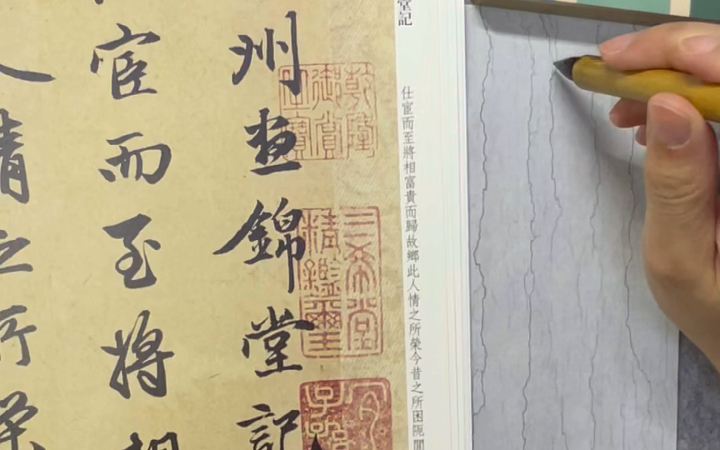 堂記
仕宦而至將相富貴而歸故鄉此人情之所榮今昔之所困阨閭
州晝錦堂記
宦而至將相
人情之所榮
乾隆御賞之寶
三希堂精鑑璽